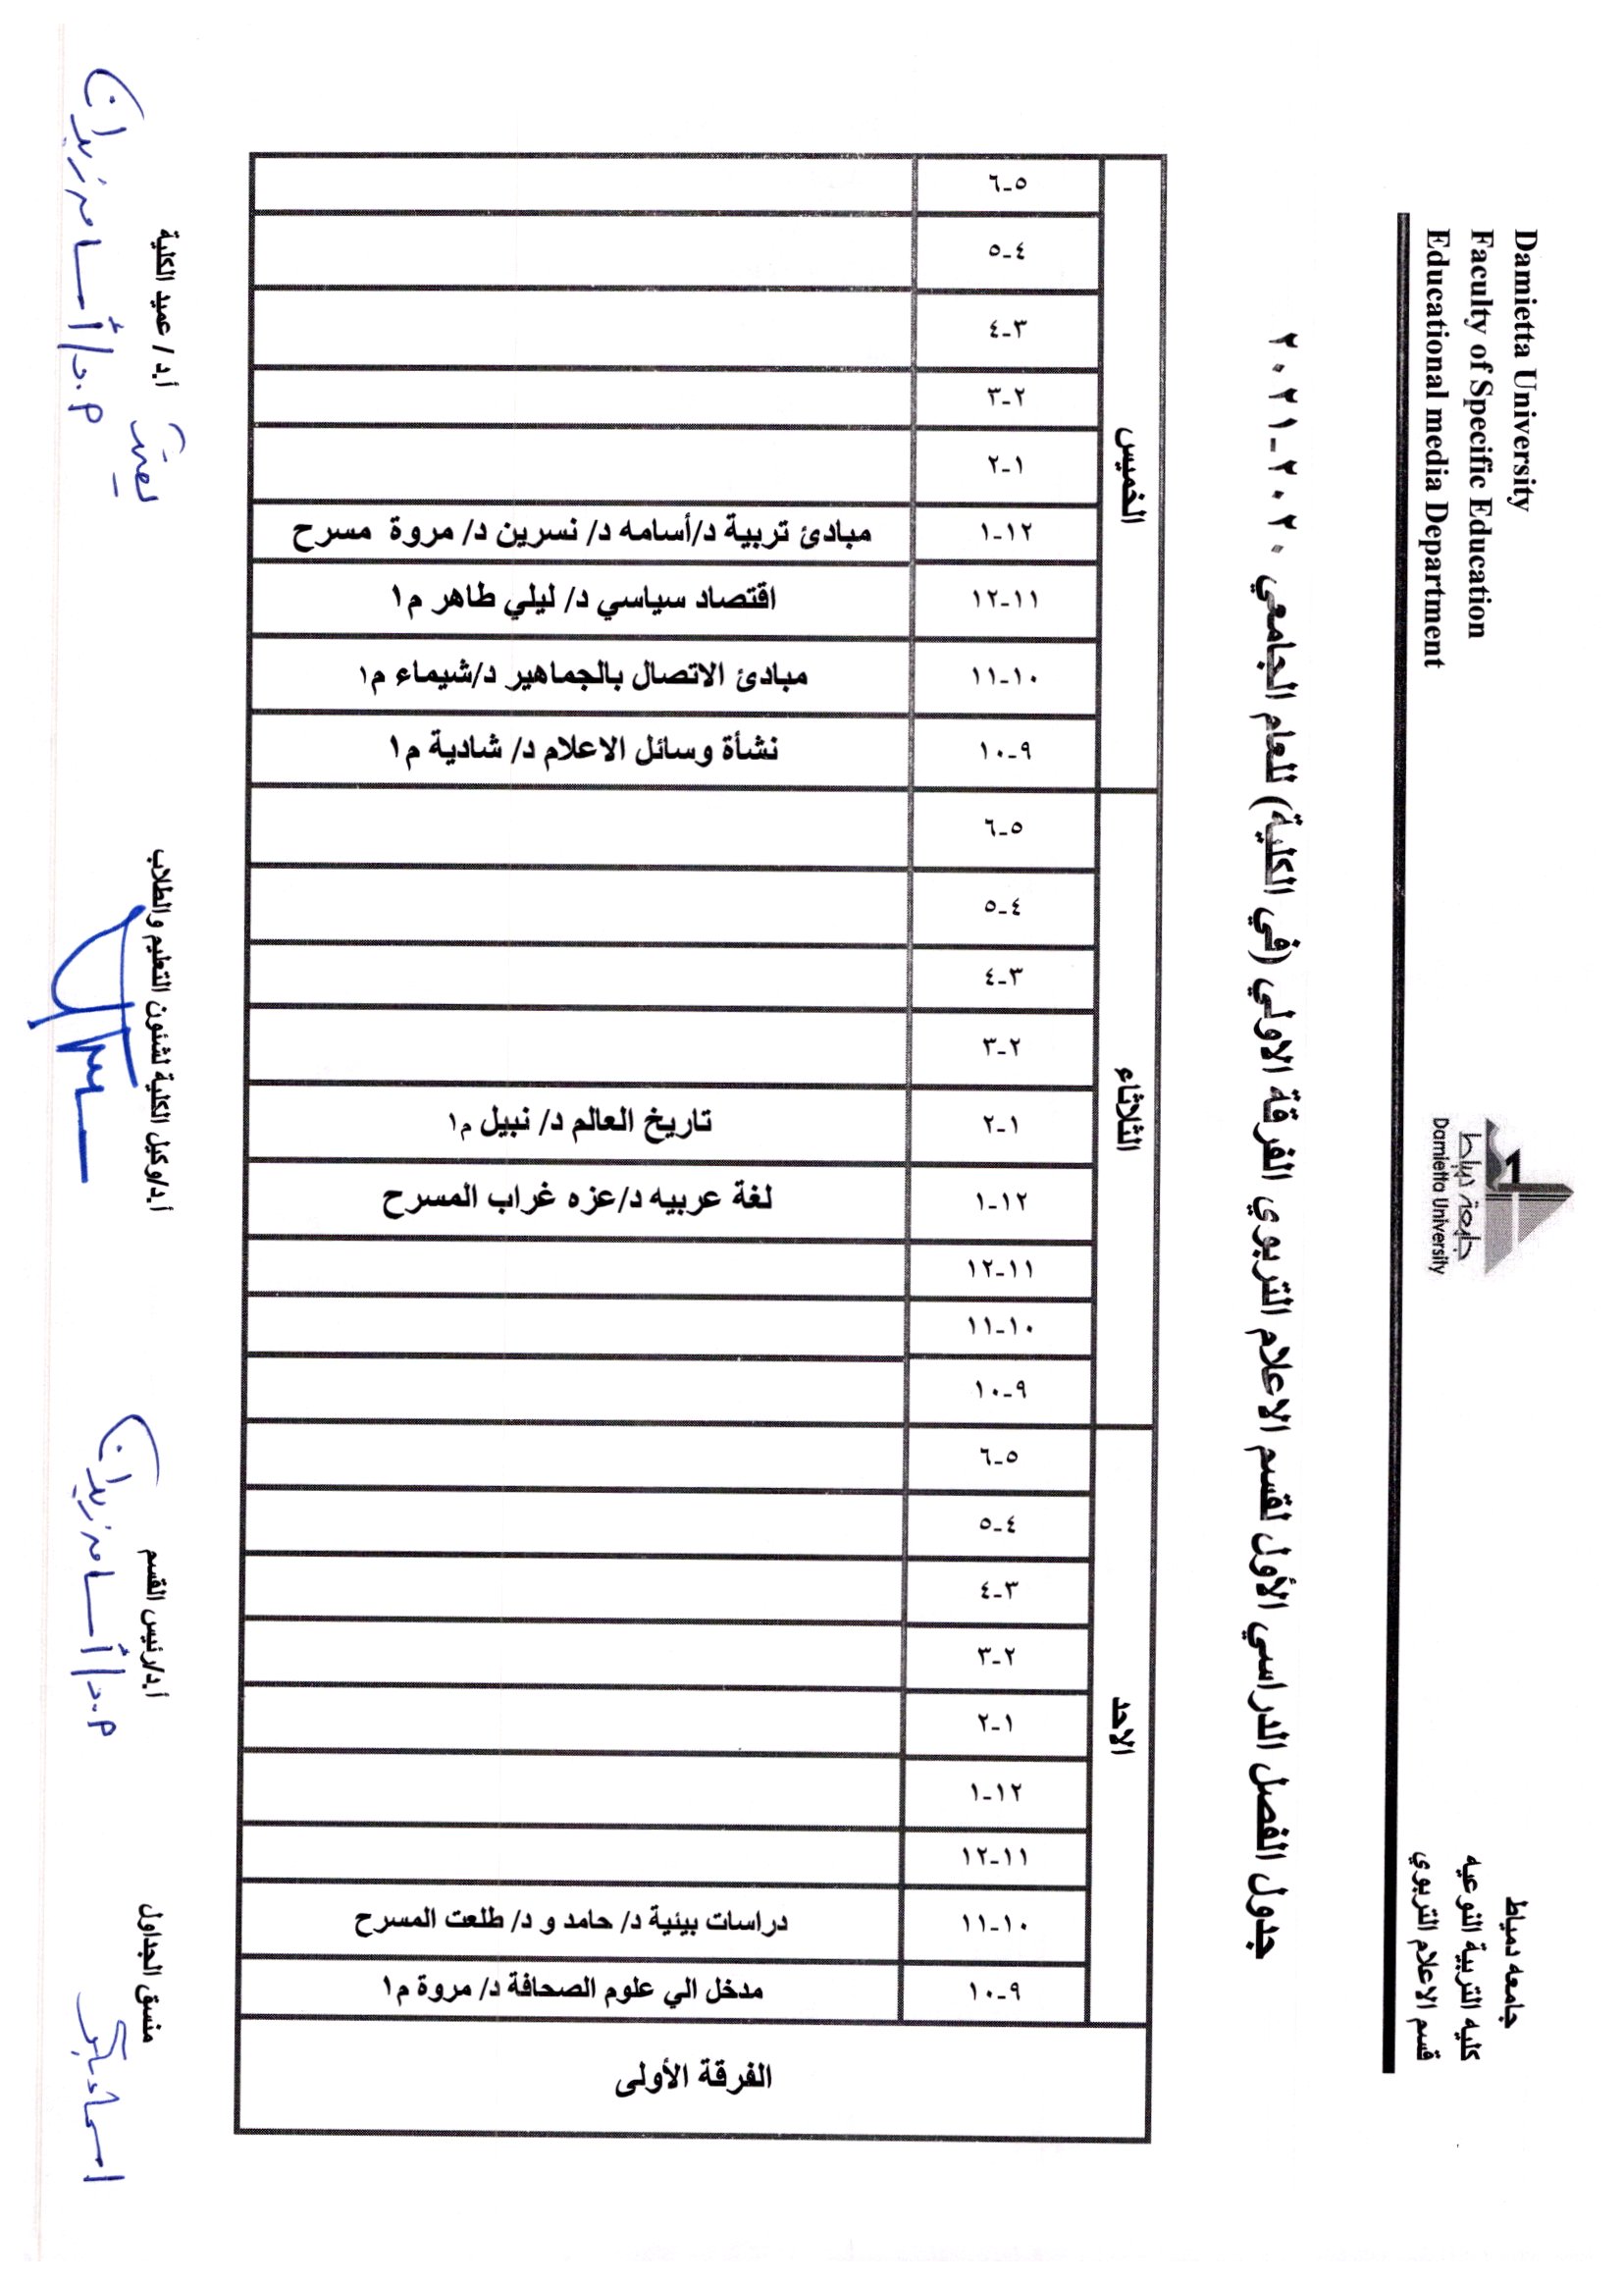 Damietta University
Faculty of Specific Education
Educational media Department
جامعة دمياط
Damietta University
جامعه دمياط
كليه التربية النوعيه
قسم الاعلام التربوي
جدول الفصل الدراسي الأول لقسم الاعلام التربوي الفرقة الاولي (في الكلية) للعام الجامعي ٢٠٢٠-٢٠٢١
الفرقة الأولى
الاحد
٩-١٠
مدخل الي علوم الصحافة د/ مروة م١
١٠-١١
دراسات بيئية د/ حامد و د/ طلعت المسرح
١١-١٢
١٢-١
١-٢
٢-٣
٣-٤
٤-٥
٥-٦
الثلاثاء
٩-١٠
١٠-١١
١١-١٢
١٢-١
لغة عربيه د/عزه غراب المسرح
١-٢
تاريخ العالم د/ نبيل م١
٢-٣
٣-٤
٤-٥
٥-٦
الخميس
٩-١٠
نشأة وسائل الاعلام د/ شادية م١
١٠-١١
مبادئ الاتصال بالجماهير د/شيماء م١
١١-١٢
اقتصاد سياسي د/ ليلي طاهر م١
١٢-١
مبادئ تربية د/أسامه د/ نسرين د/ مروة مسرح
١-٢
٢-٣
٣-٤
٤-٥
٥-٦
منسق الجداول
أ.د/رئيس القسم
أ.د/وكيل الكلية لشئون التعليم والطلاب
أ.د / عميد الكلية